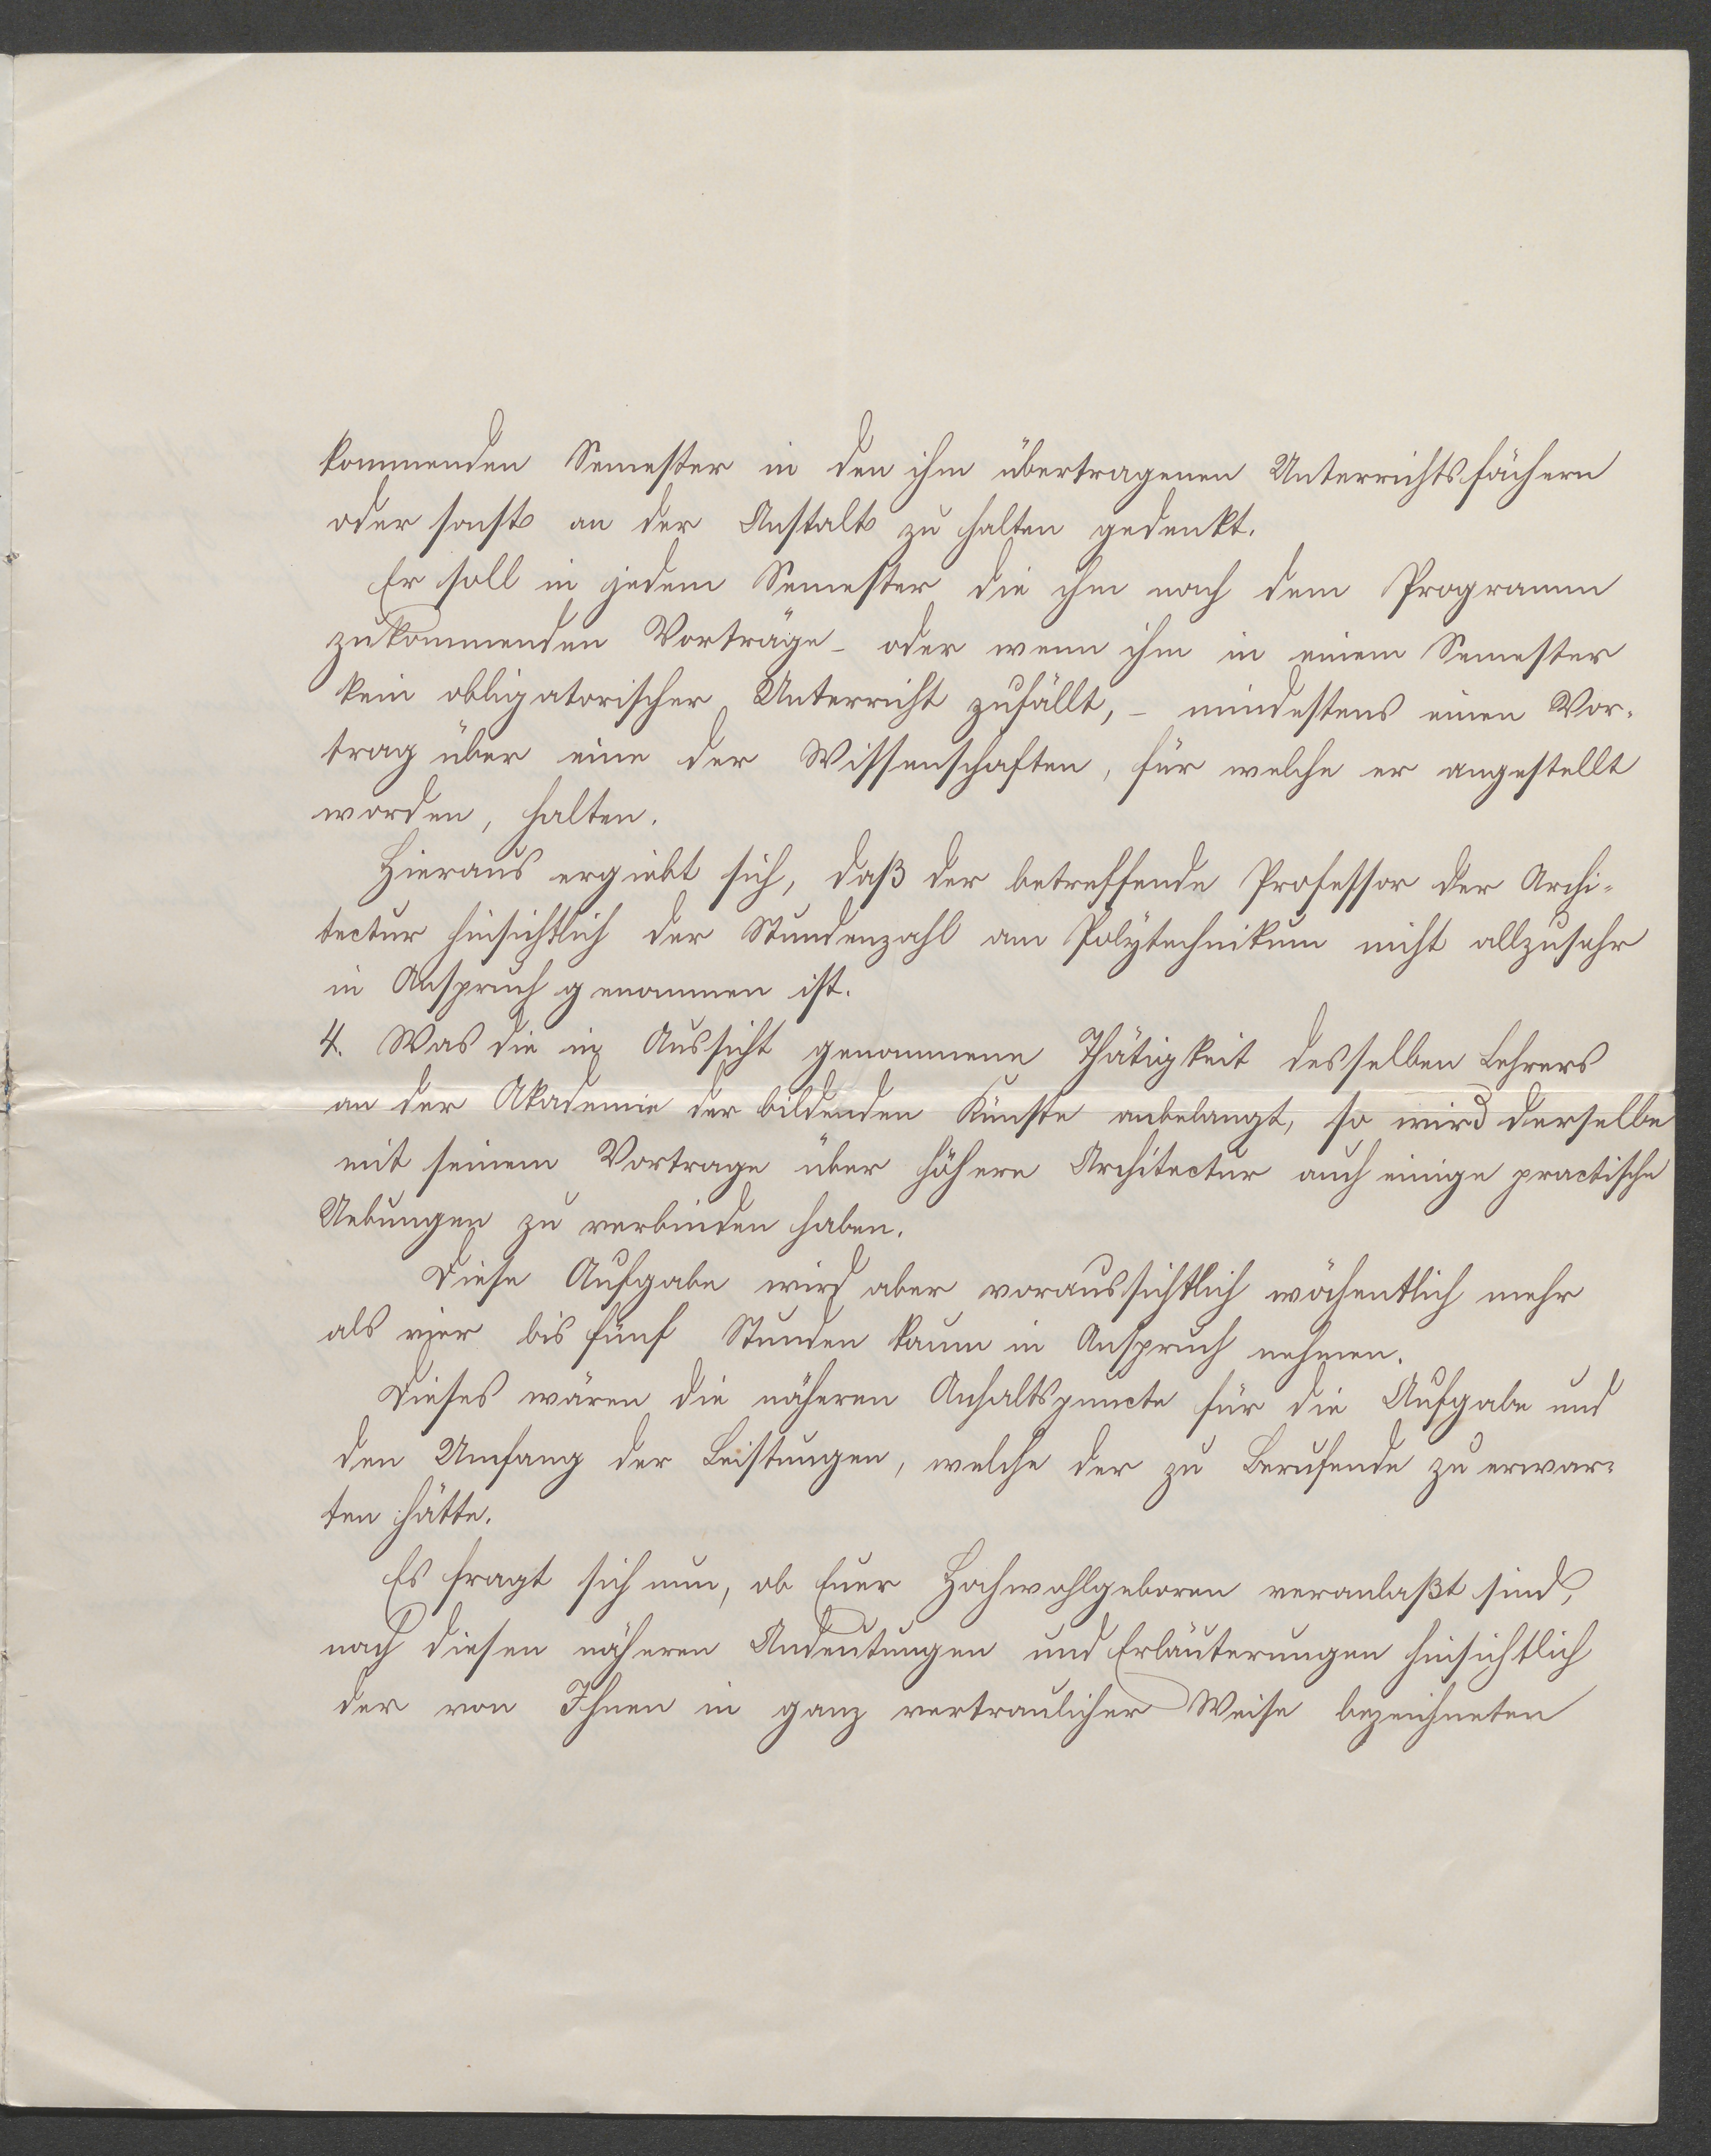 kommenden Semester in den ihm übertragenen Unterrichtsfächern
oder sonst an der Anstalt zu halten gedenkt.
Er soll in jedem Semester die ihm nach dem Programm
zukommenden Vorträge - oder wenn ihm in einem Semester
kein obligatorischer Unterricht zufällt, - mindestens einen Vor-
trag über eine der Wissenschaften, für welche er angestellt
worden, halten.
Hieraus ergiebt sich, daß der betreffende Professor der Archi-
tectur hinsichtlich der Stundenzahl am Polytechnikum nicht allzusehr
in Anspruch genommen ist.
4. Was die in Aussicht genommene Thätigkeit desselben Lehrers
an der Akademie der bildenden Künste anbelangt, so wird derselbe
mit seinem Vortrage über höhere Architectur auch einige practische
Uebungen zu verbinden haben.
Diese Aufgabe wird aber voraussichtlich wöchentlich mehr
als vier bis fünf Stunden kaum in Anspruch nehmen.
Dieses wären die näheren Anhaltspuncte für die Aufgabe und
den Umfang der Leistungen, welche der zu Berufende zu erwar-
ten hätte.
Es fragt sich nun, ob Euer Hochwohlgeboren veranlaßt sind,
nach diesen näheren Andeutungen und Erläuterungen hinsichtlich
der von Ihnen in ganz vertraulicher Weise bezeichneten